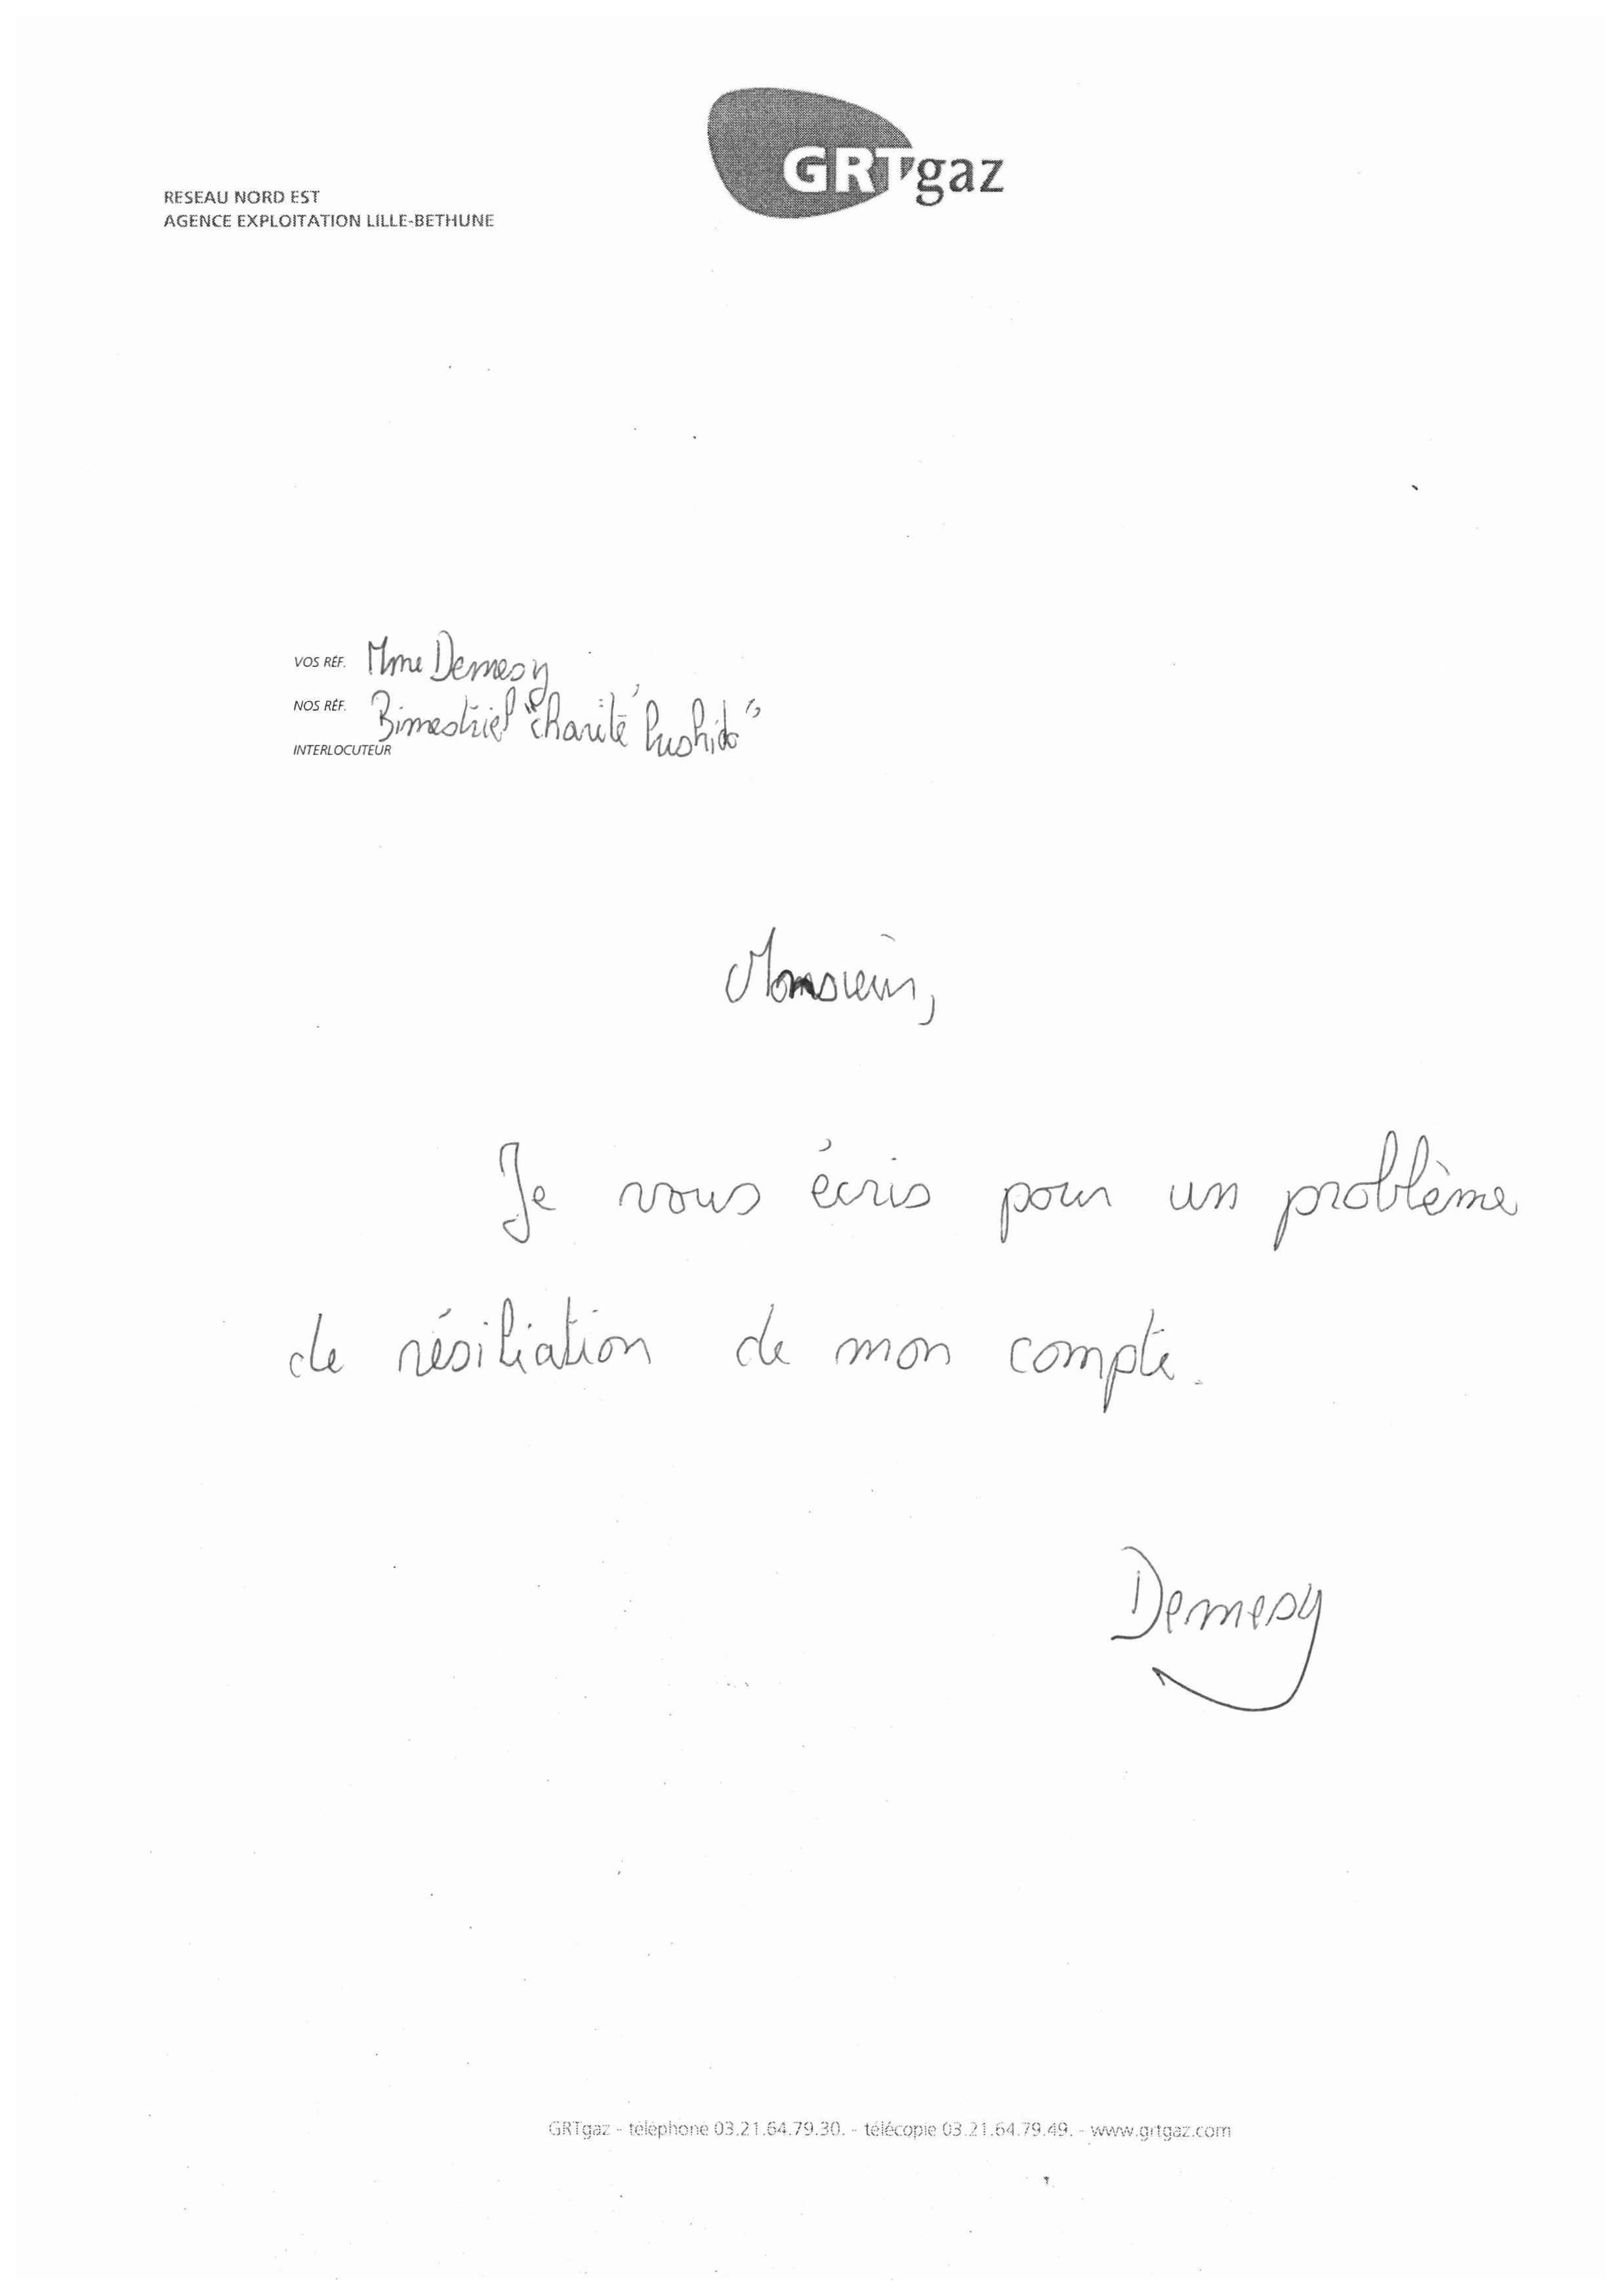 GRTgaz
RESEAU NORD EST
AGENCE EXPLOITATION LILLE-BETHUNE
VOS RÉF. Mme Demesy
NOS RÉF. Bimestriel "Charité
INTERLOCUTEUR
Monsieur,
Je vous écris pour un problème
de résiliation de mon compte.
Demesy
GRTgaz - téléphone 03.21.64.79.30. - télécopie 03.21.64.79.49. - www.grtgaz.com